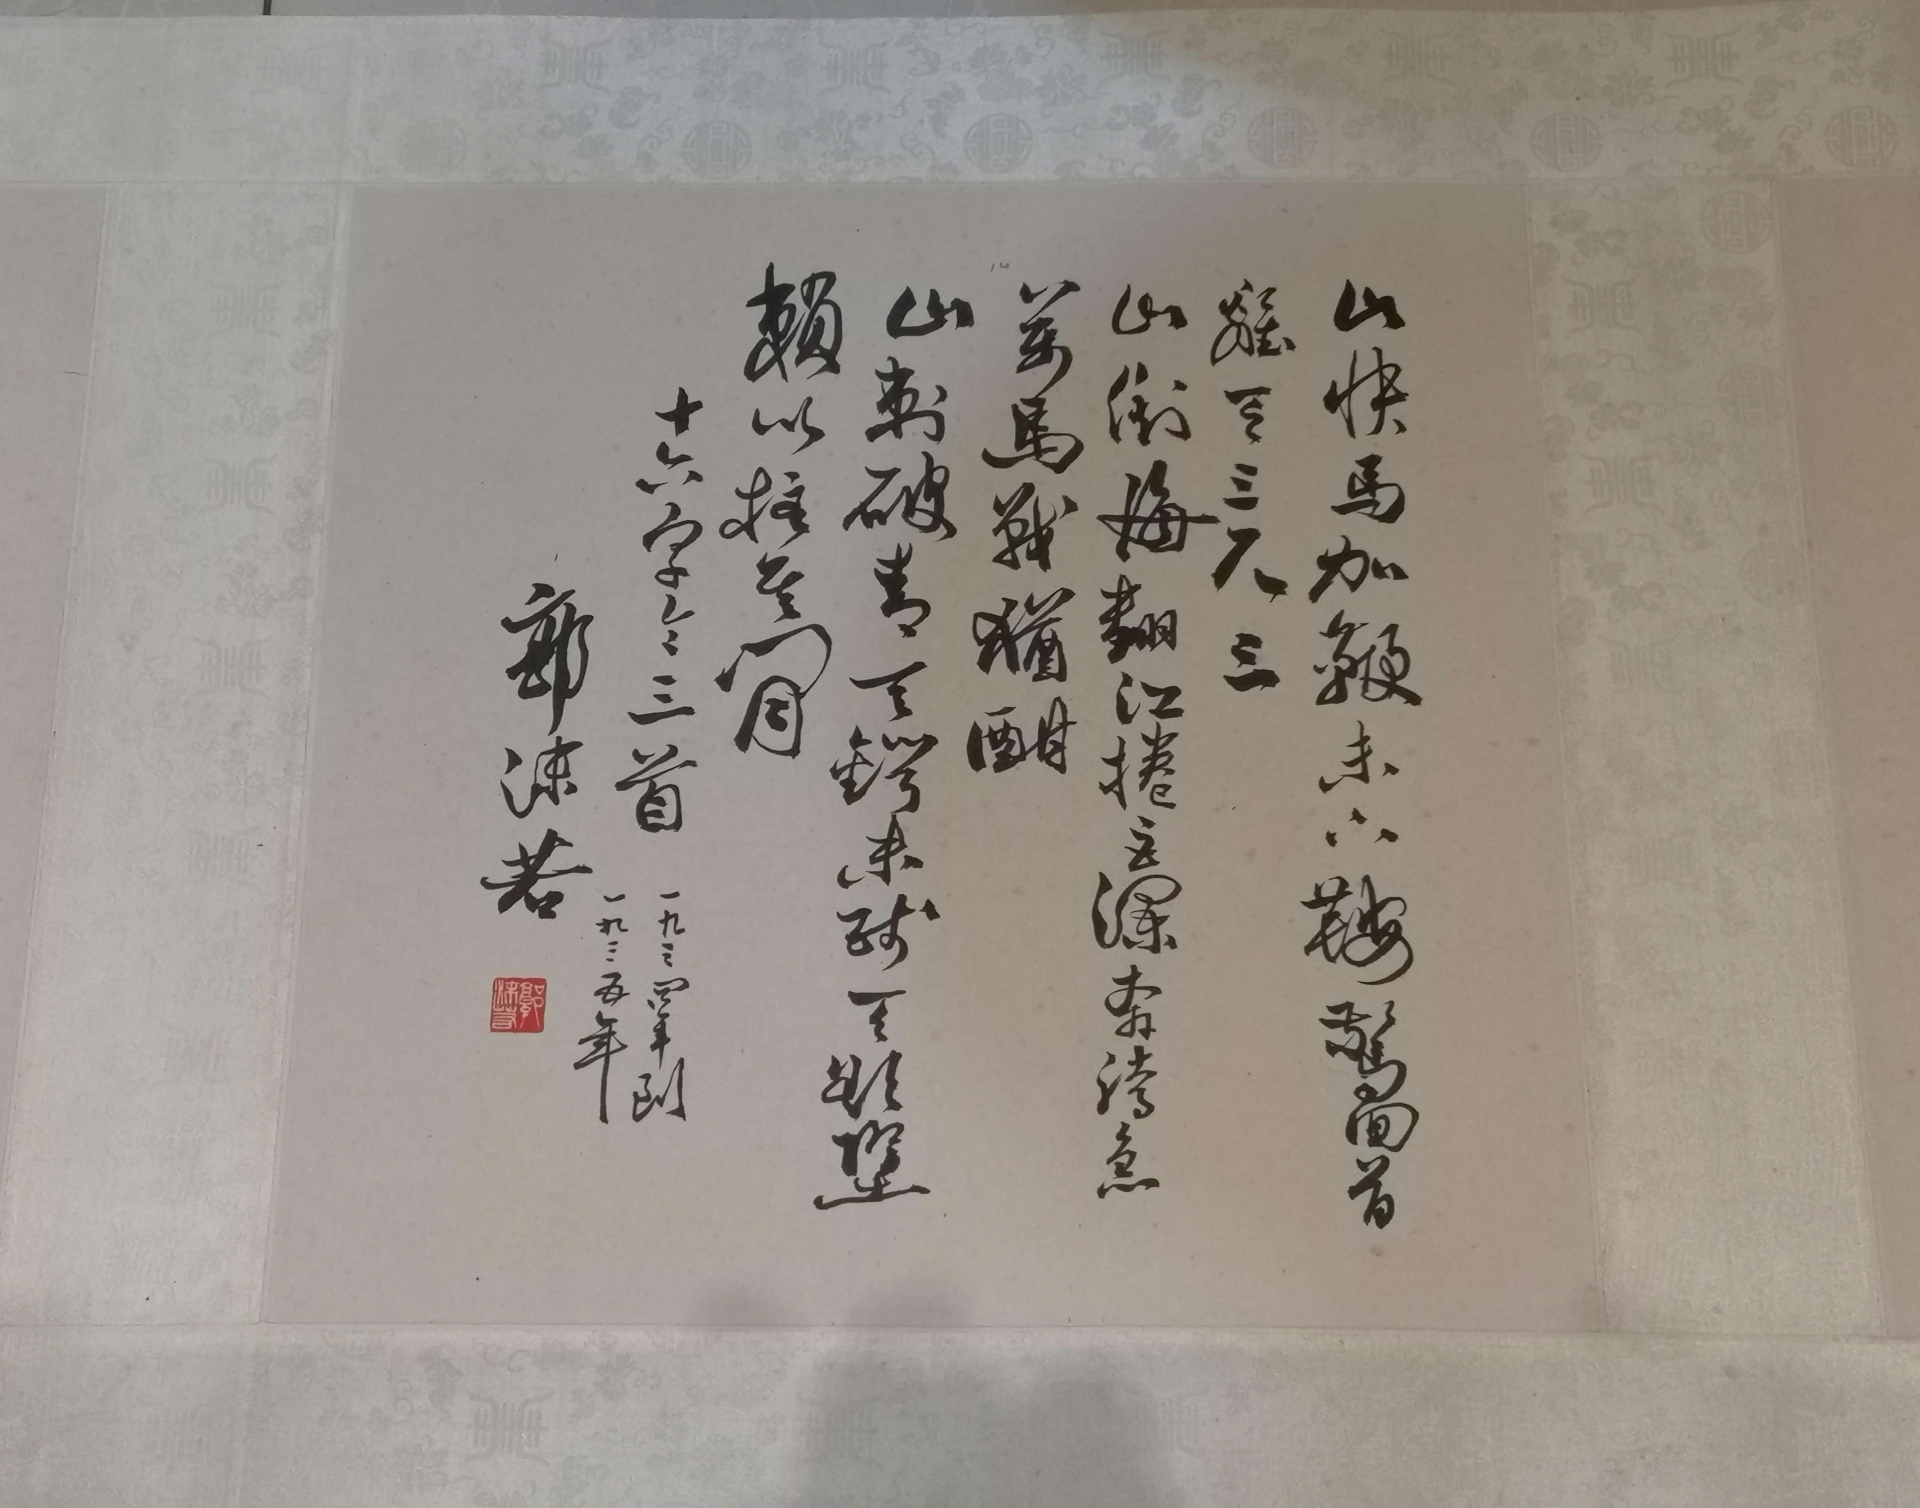 山快馬加鞭未下鞍驚回首
離天三尺三
山倒海翻江捲巨瀾奔騰急
萬馬戰猶酣
山刺破青天鍔未殘天欲墜
賴以拄其閒
十六字令三首
一九三四年到
一九三五年
郭沫若
郭沫若